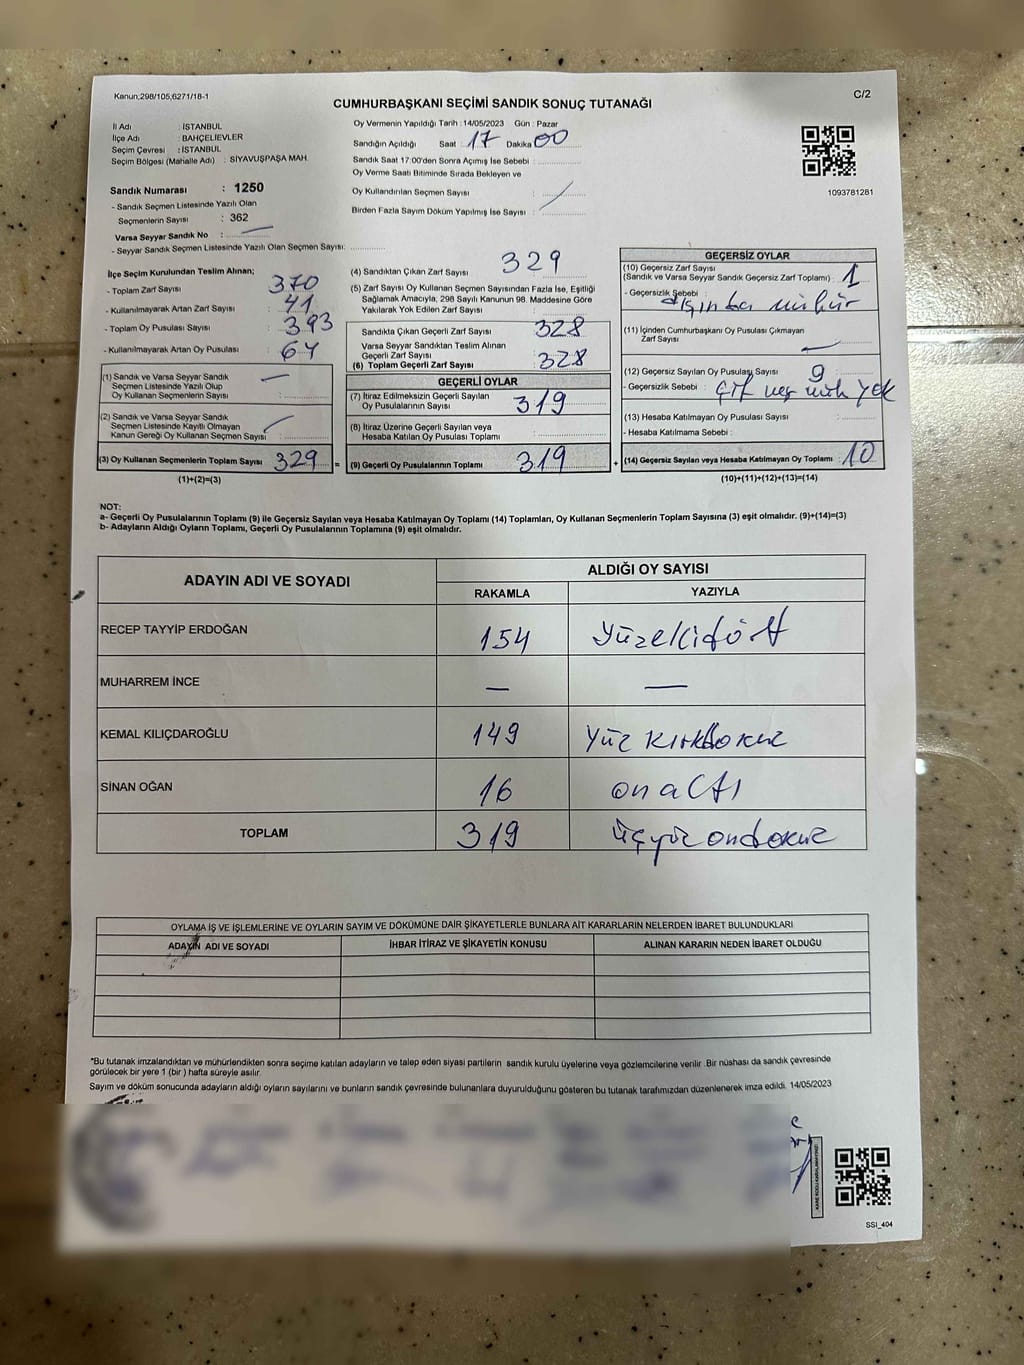 Kanun;298/105,6271/18-1
C/2
CUMHURBAŞKANI SEÇİMİ SANDIK SONUÇ TUTANAĞI
İl Adı : İSTANBUL
İlçe Adı : BAHÇELİEVLER
Seçim Çevresi : İSTANBUL
Seçim Bölgesi (Mahalle Adı) : SİYAVUŞPAŞA MAH.
Sandık Numarası : 1250
- Sandık Seçmen Listesinde Yazılı Olan
Seçmenlerin Sayısı : 362
Varsa Seyyar Sandık No :
- Seyyar Sandık Seçmen Listesinde Yazılı Olan Seçmen Sayısı:
Oy Vermenin Yapıldığı Tarih :14/05/2023 Gün : Pazar
Sandığın Açıldığı Saat 17 Dakika 00
Sandık Saat 17:00'den Sonra Açımış İse Sebebi :
Oy Verme Saati Bitiminde Sırada Bekleyen ve
Oy Kullandırılan Seçmen Sayısı :
Birden Fazla Sayım Döküm Yapılmış İse Sayısı :
1093781281
İlçe Seçim Kurulundan Teslim Alınan;
- Toplam Zarf Sayısı : 370
- Kullanılmayarak Artan Zarf Sayısı : 41
- Toplam Oy Pusulası Sayısı : 393
- Kullanılmayarak Artan Oy Pusulası : 64
(1) Sandık ve Varsa Seyyar Sandık
Seçmen Listesinde Yazılı Olup
Oy Kullanan Seçmenlerin Sayısı : —
(2) Sandık ve Varsa Seyyar Sandık
Seçmen Listesinde Kayıtlı Olmayan
Kanun Gereği Oy Kullanan Seçmen Sayısı :
(3) Oy Kullanan Seçmenlerin Toplam Sayısı 329 =
(1)+(2)=(3)
(4) Sandıktan Çıkan Zarf Sayısı 329
(5) Zarf Sayısı Oy Kullanan Seçmen Sayısından Fazla İse, Eşitliği
Sağlamak Amacıyla, 298 Sayılı Kanunun 98. Maddesine Göre
Yakılarak Yok Edilen Zarf Sayısı :
Sandıkta Çıkan Geçerli Zarf Sayısı 328
Varsa Seyyar Sandıktan Teslim Alınan
Geçerli Zarf Sayısı
(6) Toplam Geçerli Zarf Sayısı 328
GEÇERLİ OYLAR
(7) İtiraz Edilmeksizin Geçerli Sayılan
Oy Pusulalarının Sayısı 319
(8) İtiraz Üzerine Geçerli Sayılan veya
Hesaba Katılan Oy Pusulası Toplamı
(9) Geçerli Oy Pusulalarının Toplamı 319 +
GEÇERSİZ OYLAR
(10) Geçersiz Zarf Sayısı
(Sandık ve Varsa Seyyar Sandık Geçersiz Zarf Toplamı) : 1
- Geçersizlik Sebebi : dışında mühür
(11) İçinden Cumhurbaşkanı Oy Pusulası Çıkmayan
Zarf Sayısı : —
(12) Geçersiz Sayılan Oy Pusulası Sayısı : 9
- Geçersizlik Sebebi : yok
(13) Hesaba Katılmayan Oy Pusulası Sayısı :
- Hesaba Katılmama Sebebi :
(14) Geçersiz Sayılan veya Hesaba Katılmayan Oy Toplamı : 10
(10)+(11)+(12)+(13)=(14)
NOT:
a- Geçerli Oy Pusulalarının Toplamı (9) ile Geçersiz Sayılan veya Hesaba Katılmayan Oy Toplamı (14) Toplamları, Oy Kullanan Seçmenlerin Toplam Sayısına (3) eşit olmalıdır. (9)+(14)=(3)
b- Adayların Aldığı Oyların Toplamı, Geçerli Oy Pusulalarının Toplamına (9) eşit olmalıdır.
ADAYIN ADI VE SOYADI ALDIĞI OY SAYISI
RAKAMLA YAZIYLA
RECEP TAYYİP ERDOĞAN 154 Yüzellidört
MUHARREM İNCE — —
KEMAL KILIÇDAROĞLU 149 Yüz kırkdokuz
SİNAN OĞAN 16 onaltı
TOPLAM 319 üçyüz ondokuz
OYLAMA İŞ VE İŞLEMLERİNE VE OYLARIN SAYIM VE DÖKÜMÜNE DAİR ŞİKAYETLERLE BUNLARA AİT KARARLARIN NELERDEN İBARET BULUNDUKLARI
ADAYIN ADI VE SOYADI İHBAR İTİRAZ VE ŞİKAYETİN KONUSU ALINAN KARARIN NEDEN İBARET OLDUĞU
*Bu tutanak imzalandıktan ve mühürlendikten sonra seçime katılan adayların ve talep eden siyasi partilerin sandık kurulu üyelerine veya gözlemcilerine verilir. Bir nüshası da sandık çevresinde
görülecek bir yere 1 (bir) hafta süreyle asılır.
Sayım ve döküm sonucunda adayların aldığı oyların sayılarını ve bunların sandık çevresinde bulunanlara duyurulduğunu gösteren bu tutanak tarafımızdan düzenlenerek imza edildi. 14/05/2023
SSI_404